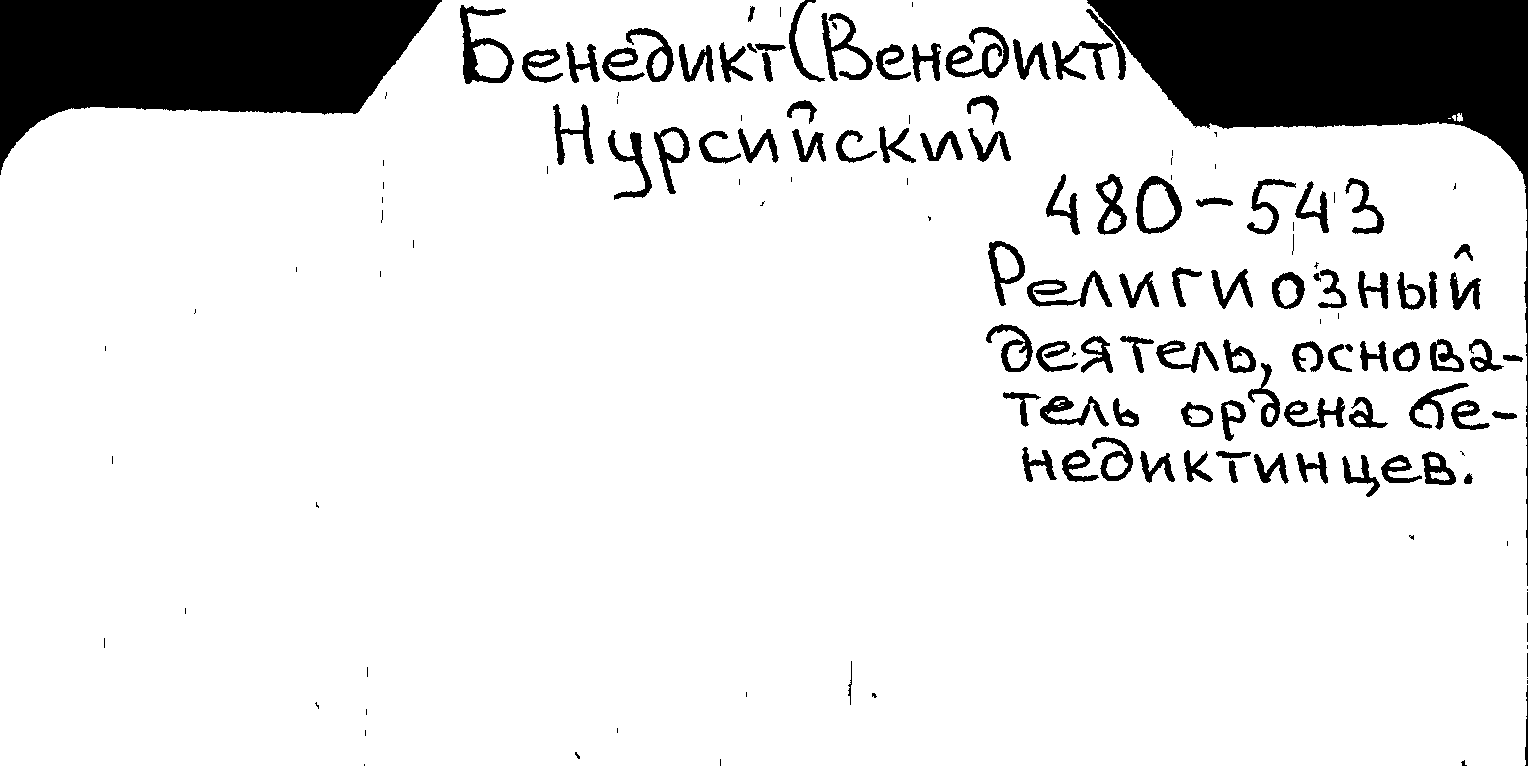 Бенедикт (Венедикт)
Нурсийский
480-543
Религиозный
деятель, основа-
тель ордена бе-
недиктинцев.